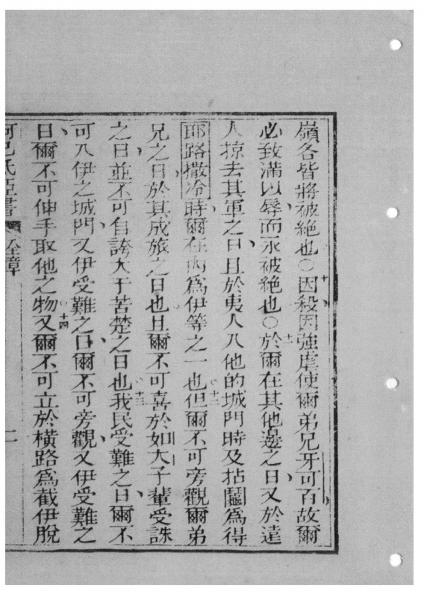 嶺各皆將被絕也○十因殺因強虐使爾弟兄牙可百故爾
必致滿以辱而永被絕也○十一於爾在其他邊之日又於達
人掠去其軍之日且於夷人入他的城門時及拈鬮爲得
耶路撒冷時爾在內爲伊等之一也十二但爾不可旁觀爾弟
兄之日於其成旅之日也且爾不可喜於如大子輩受誅
之日並不可自誇大于苦楚之日也十三我民受難之日爾不
可入伊之城門又伊受難之日爾不可旁觀又伊受難之
日爾不可伸手取他之物十四又爾不可立於橫路爲截伊脫
阿巴氐亞書 全章 二